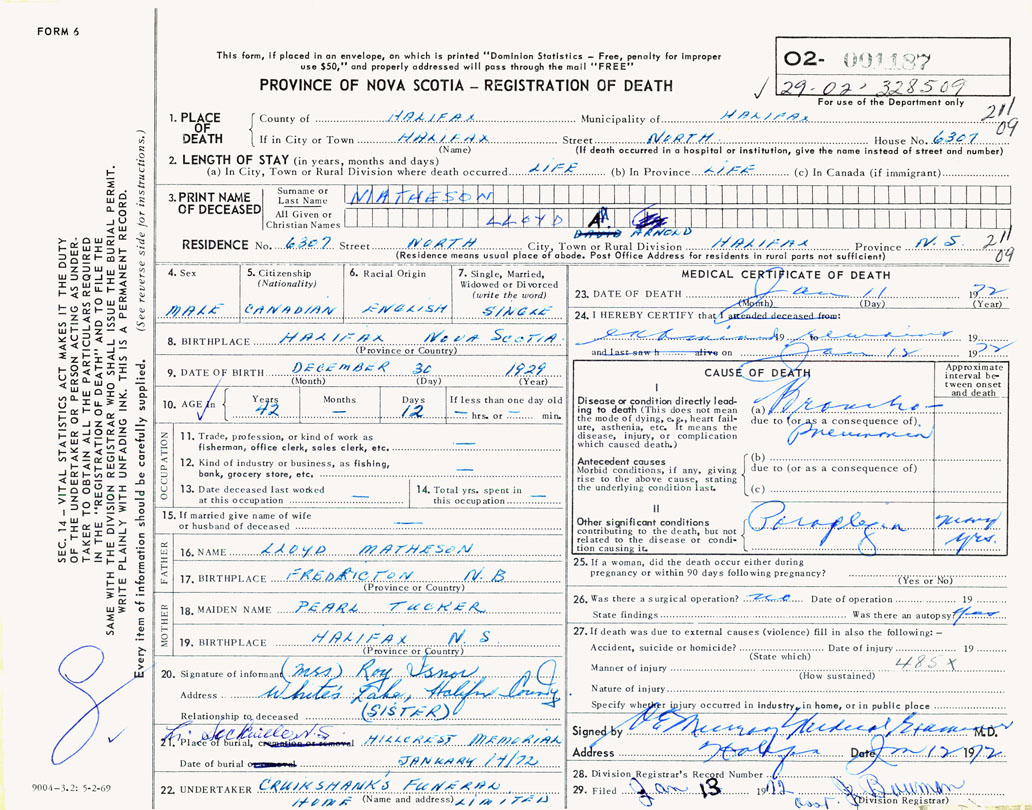 FORM 6
This form, if placed in an envelope, on which is printed "Dominion Statistics – Free, penalty for improper
use $50," and properly addressed will pass through the mail "FREE"
PROVINCE OF NOVA SCOTIA – REGISTRATION OF DEATH
02- 001187
29-02-328509
For use of the Department only
211
09
1. PLACE OF DEATH
County of HALIFAX Municipality of HALIFAX
If in City or Town HALIFAX Street NORTH House No. 6307
(Name) (If death occurred in a hospital or institution, give the name instead of street and number)
2. LENGTH OF STAY (in years, months and days)
(a) In City, Town or Rural Division where death occurred LIFE (b) In Province LIFE (c) In Canada (if immigrant)
3. PRINT NAME OF DECEASED
Surname or Last Name MATHESON
All Given or Christian Names LLOYD
DAVID ARNOLD
RESIDENCE No. 6307 Street NORTH City, Town or Rural Division HALIFAX Province N.S. 211
(Residence means usual place of abode. Post Office Address for residents in rural parts not sufficient) 09
4. Sex
MALE
5. Citizenship (Nationality)
CANADIAN
6. Racial Origin
ENGLISH
7. Single, Married, Widowed or Divorced (write the word)
SINGLE
8. BIRTHPLACE HALIFAX NOVA SCOTIA
(Province or Country)
9. DATE OF BIRTH DECEMBER 30 1929
(Month) (Day) (Year)
10. AGE in Years Months Days If less than one day old
42 – 12 – hrs. or – min.
OCCUPATION
11. Trade, profession, or kind of work as
fisherman, office clerk, sales clerk, etc. —
12. Kind of industry or business, as fishing,
bank, grocery store, etc. —
13. Date deceased last worked
at this occupation —
14. Total yrs. spent in
this occupation —
15. If married give name of wife
or husband of deceased —
FATHER
16. NAME LLOYD MATHESON
17. BIRTHPLACE FREDRICTON N.B
(Province or Country)
MOTHER
18. MAIDEN NAME PEARL TUCKER
19. BIRTHPLACE HALIFAX N.S.
(Province or Country)
20. Signature of informant (Mrs) Roy Isnor
Address White's Lake, Halifax County
Relationship to deceased (SISTER)
Sackville N.S.
21. Place of burial, cremation or removal HILLCREST MEMORIAL
Date of burial or removal JANUARY 17/72
22. UNDERTAKER CRUIKSHANK'S FUNERAL
HOME (Name and address) LIMITED
MEDICAL CERTIFICATE OF DEATH
23. DATE OF DEATH Jan 11 1972
(Month) (Day) (Year)
24. I HEREBY CERTIFY that I attended deceased from:
examined 19 to remains 19
and last saw h alive on Jan 12 1972
CAUSE OF DEATH
Approximate interval between onset and death
I
Disease or condition directly leading to death (This does not mean the mode of dying, e.g., heart failure, asthenia, etc. It means the disease, injury, or complication which caused death.)
(a) Broncho-
due to (or as a consequence of),
pneumonia
Antecedent causes
Morbid conditions, if any, giving rise to the above cause, stating the underlying condition last.
(b)
due to (or as a consequence of)
(c)
II
Other significant conditions contributing to the death, but not related to the disease or condition causing it.
Paraplegia many yrs.
25. If a woman, did the death occur either during
pregnancy or within 90 days following pregnancy?
(Yes or No)
26. Was there a surgical operation? no Date of operation 19
State findings Was there an autopsy? Yes
27. If death was due to external causes (violence) fill in also the following: –
Accident, suicide or homicide? Date of injury 19
(State which) 485X
Manner of injury
(How sustained)
Nature of injury
Specify whether injury occurred in industry, in home, or in public place
Signed by Murray Medical Examiner M.D.
Address Halifax Date Jan 12 1972
28. Division Registrar's Record Number
29. Filed Jan 13 1972 Bauman
(Division Registrar)
SEC. 14 – VITAL STATISTICS ACT MAKES IT THE DUTY
OF THE UNDERTAKER OR PERSON ACTING AS UNDER-
TAKER TO OBTAIN ALL THE PARTICULARS REQUIRED
IN THE "REGISTRATION OF DEATH" AND TO FILE THE
SAME WITH THE DIVISION REGISTRAR WHO SHALL ISSUE THE BURIAL PERMIT.
WRITE PLAINLY WITH UNFADING INK. THIS IS A PERMANENT RECORD.
Every item of information should be carefully supplied. (See reverse side for instructions.)
9004–3.2: 5-2-69